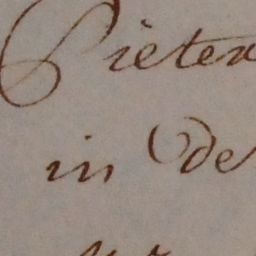 Pieter
in de